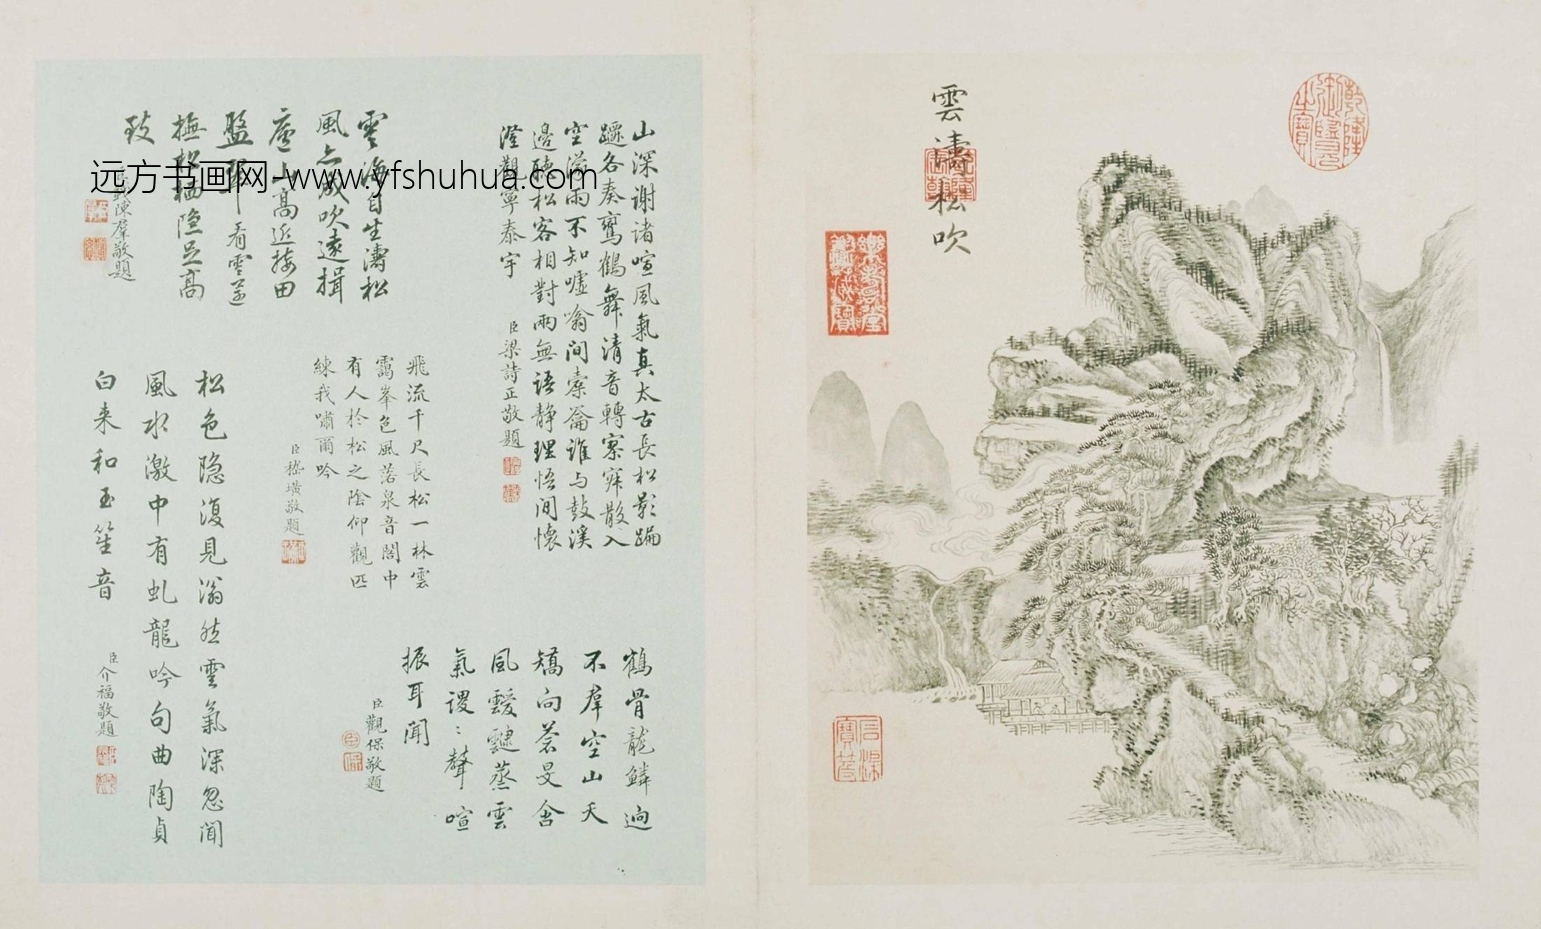 雲濤松吹
乾隆御覽之寶
山深谢诸喧風氣真太古長松影蹁
躚各奏鸾鶴舞清音轉寥寂散入
空滋雨不知噓翕间橐籥谁与鼓溪
邊聴松客相對兩無语静理悟间懐
澄觀寧泰宇
臣梁詩正敬題
雲海自生濤松
風亦成吹遠揖
廬山高近接田
盤
看雲遂
撫 隐足高
致
陳羣敬題
飛流千尺長松一林雲
靄峯色風落泉音閣中
有人於松之陰仰觀匹
練我嘯爾吟
臣嵇璜敬題
鶴骨龍鱗迥
不羣空山天
矯向蒼旻含
風靉靆蒸雲
氣謖〻聲喧
振耳聞
臣觀保敬題
松色隐復見滃然雲氣深忽闻
風水激中有虬龍吟句曲陶貞
白来和玉笙音
臣介福敬題
远方书画网-www.yfshuhua.com